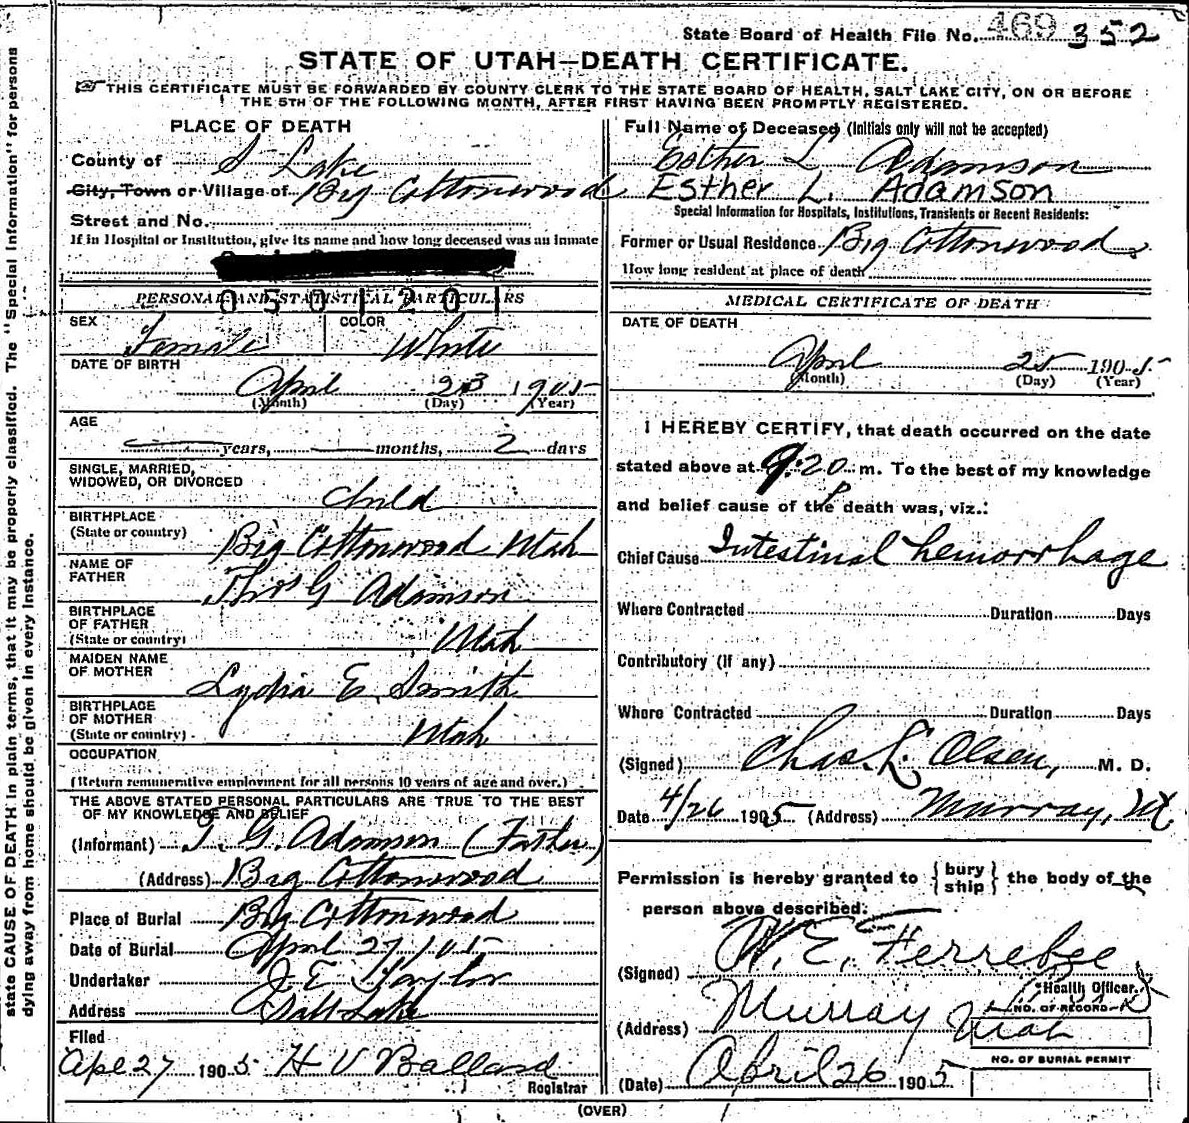 State Board of Health File No. 469 352
STATE OF UTAH—DEATH CERTIFICATE.
THIS CERTIFICATE MUST BE FORWARDED BY COUNTY CLERK TO THE STATE BOARD OF HEALTH, SALT LAKE CITY, ON OR BEFORE
THE 5TH OF THE FOLLOWING MONTH, AFTER FIRST HAVING BEEN PROMPTLY REGISTERED.
state CAUSE OF DEATH in plain terms, that it may be properly classified. The "Special Information" for persons
dying away from home should be given in every instance.
PLACE OF DEATH
County of S Lake
City, Town or Village of Big Cottonwood
Street and No.
If in Hospital or Institution, give its name and how long deceased was an inmate
PERSONAL AND STATISTICAL PARTICULARS
0501201
SEX Female COLOR White
DATE OF BIRTH
April 23 1905
(Month) (Day) (Year)
AGE
years, months, 2 days
SINGLE, MARRIED,
WIDOWED, OR DIVORCED
child
BIRTHPLACE
(State or country) Big Cottonwood Utah
NAME OF
FATHER Thos G Adamson
BIRTHPLACE
OF FATHER
(State or country) Utah
MAIDEN NAME
OF MOTHER Lydia E. Smith
BIRTHPLACE
OF MOTHER
(State or country) Utah
OCCUPATION
(Return remunerative employment for all persons 10 years of age and over.)
THE ABOVE STATED PERSONAL PARTICULARS ARE TRUE TO THE BEST
OF MY KNOWLEDGE AND BELIEF
(Informant) T. G. Adamson (Father)
(Address) Big Cottonwood
Place of Burial Big Cottonwood
Date of Burial April 27/905
Undertaker J. E. Taylor
Address Salt Lake
Filed
Apl 27 1905 H V Ballard
Registrar
Full Name of Deceased (Initials only will not be accepted)
Esther L Adamson
Esther L. Adamson
Special Information for Hospitals, Institutions, Transients or Recent Residents:
Former or Usual Residence Big Cottonwood
How long resident at place of death
MEDICAL CERTIFICATE OF DEATH
DATE OF DEATH
April 25 1905
(Month) (Day) (Year)
I HEREBY CERTIFY, that death occurred on the date
stated above at 9:20 P m. To the best of my knowledge
and belief cause of the death was, viz.:
Chief Cause Intestinal hemorrhage
Where Contracted Duration Days
Contributory (if any)
Where Contracted Duration Days
(Signed) Chas. L. Olsen, M. D.
Date 4/26 1905 (Address) Murray, Ut.
Permission is hereby granted to { bury
ship } the body of the
person above described:
(Signed) W. E. Ferrebee
Health Officer.
NO. OF RECORD
(Address) Murray Utah
NO. OF BURIAL PERMIT
(Date) April 26 1905
(OVER)